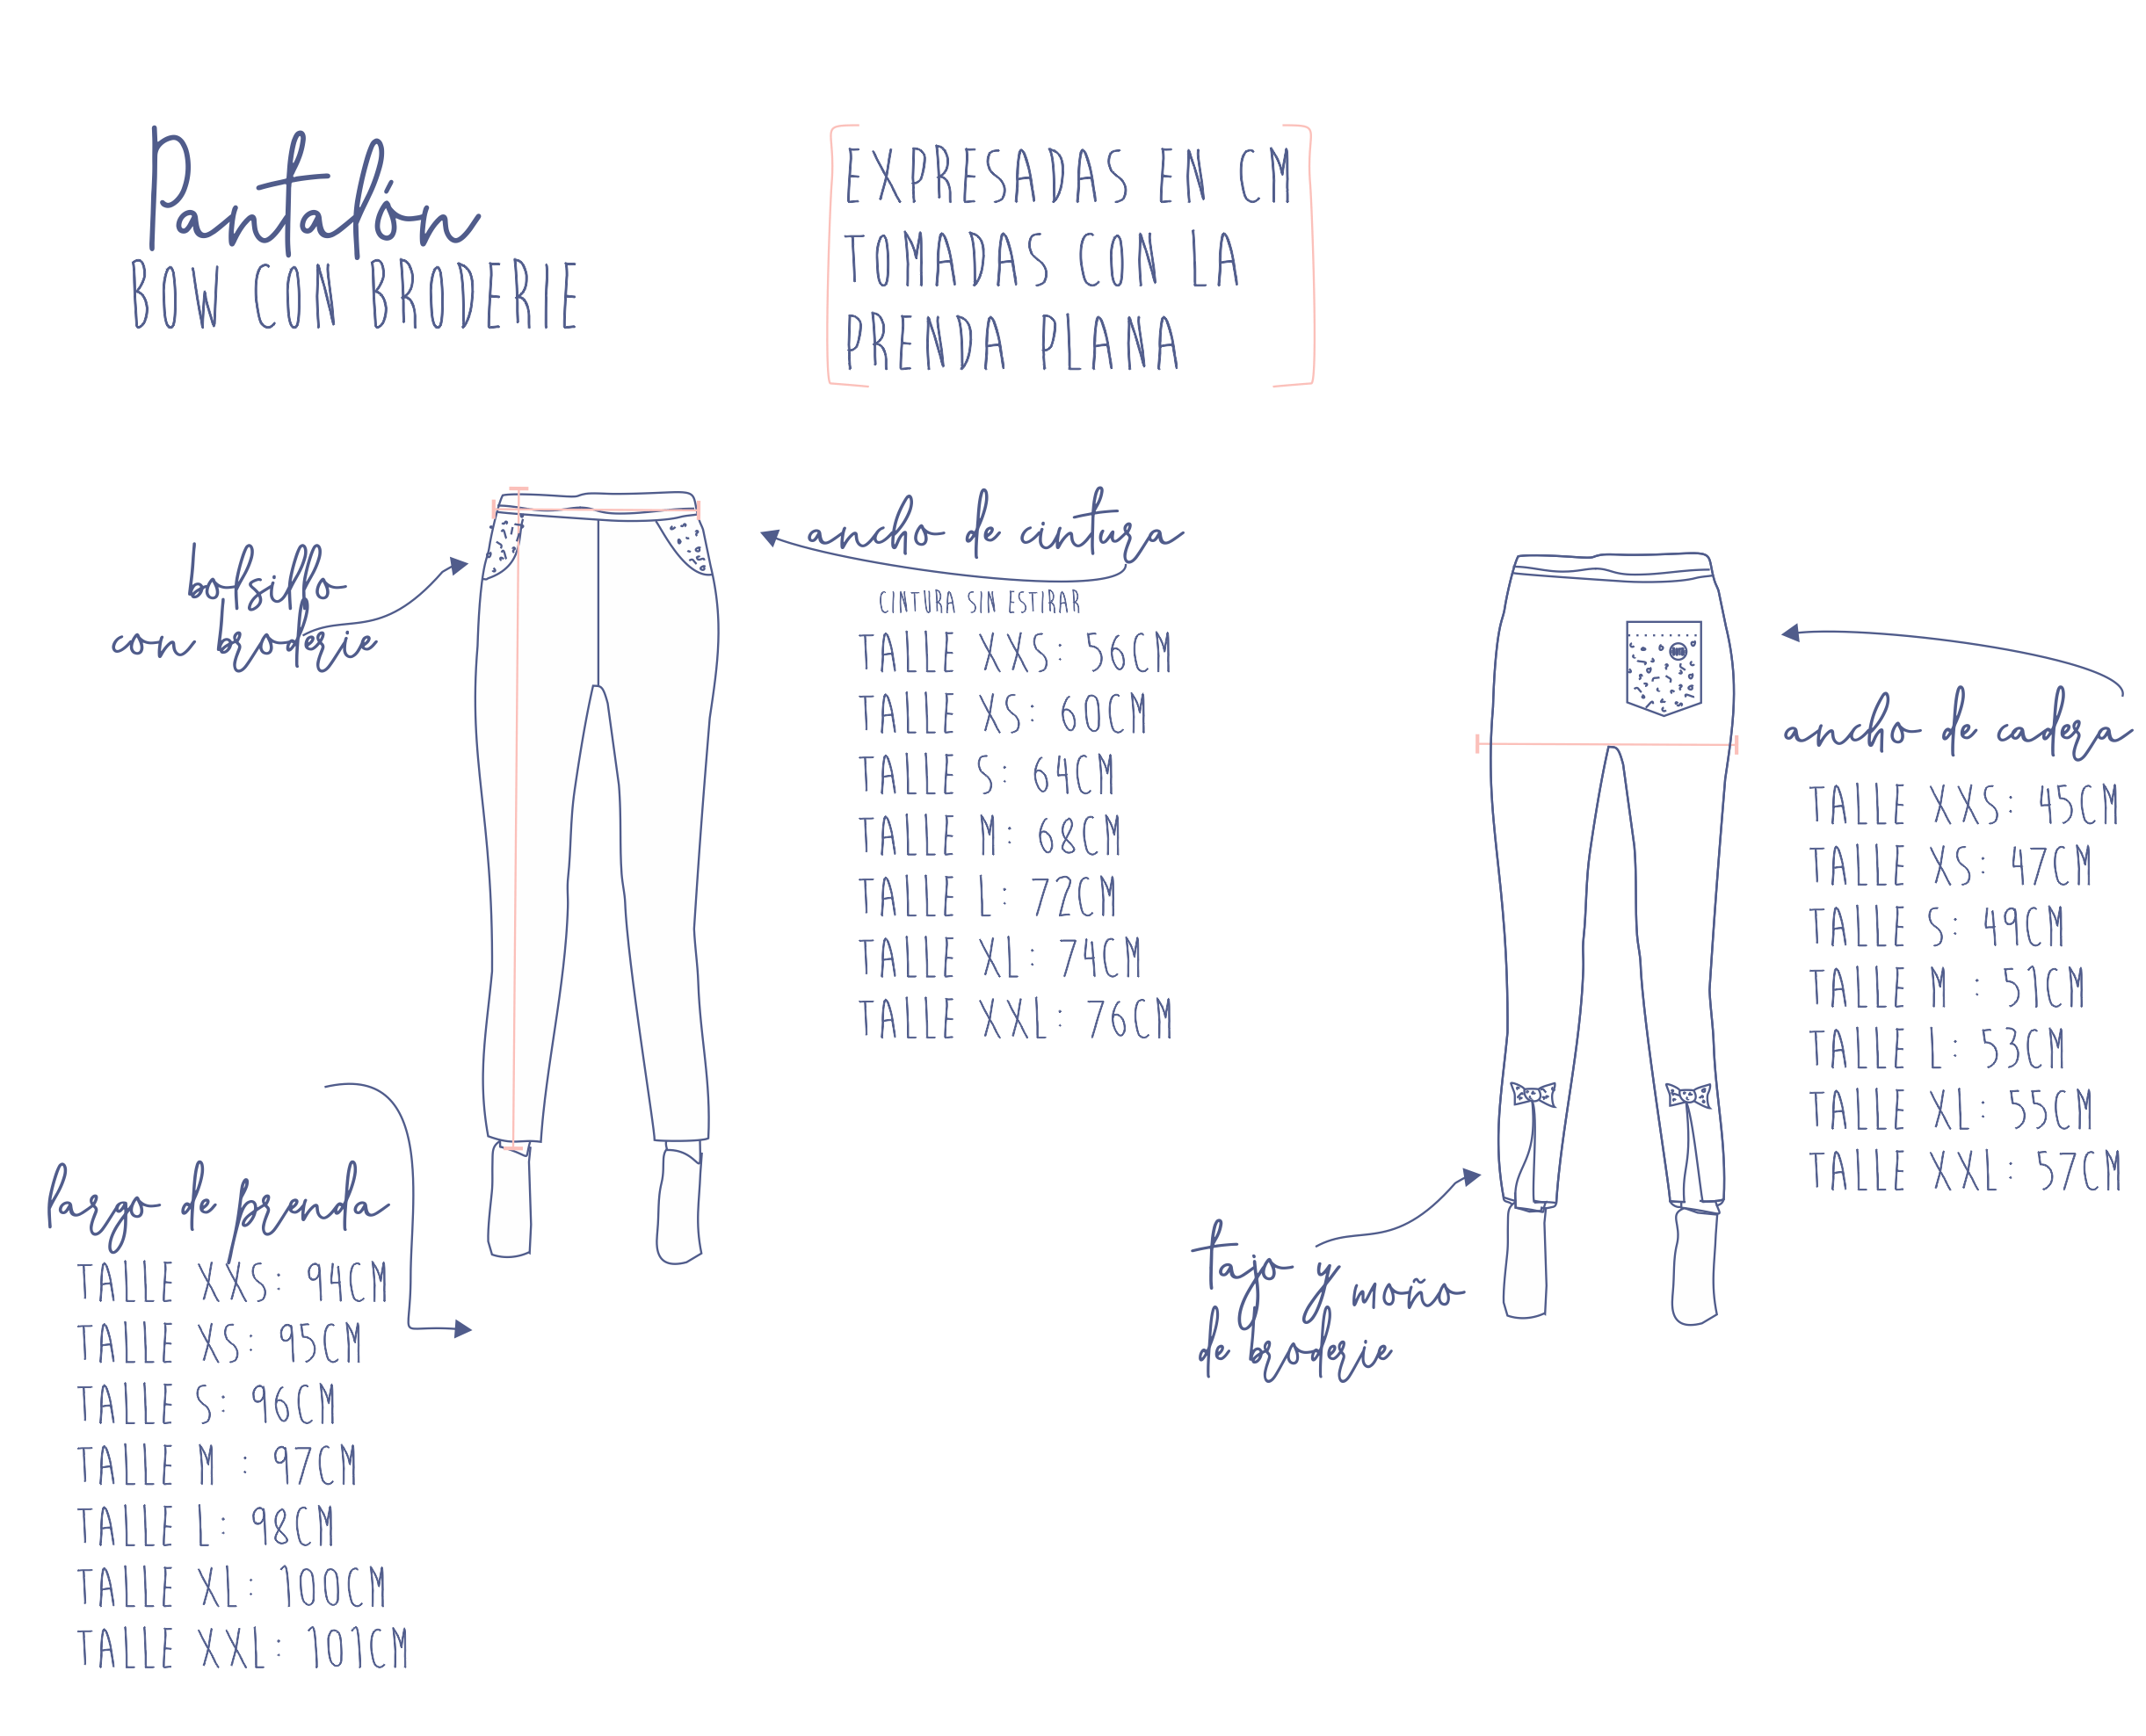 Pantalón
BOW CON BRODERIE
EXPRESADAS EN CM
TOMADAS CON LA
PRENDA PLANA
bolsillo
con broderie
ancho de cintura
CINTURA SIN ESTIRAR
TALLE XXS: 56CM
TALLE XS: 60CM
TALLE S: 64CM
TALLE M: 68CM
TALLE L: 72CM
TALLE XL: 74CM
TALLE XXL: 76CM
ancho de cadera
TALLE XXS: 45CM
TALLE XS: 47CM
TALLE S: 49CM
TALLE M : 51CM
TALLE L: 53CM
TALLE XL: 55CM
TALLE XXL: 57CM
largo de prenda
TALLE XXS: 94CM
TALLE XS: 95CM
TALLE S: 96CM
TALLE M : 97CM
TALLE L: 98CM
TALLE XL: 100CM
TALLE XXL: 101CM
tajo y moño
de broderie